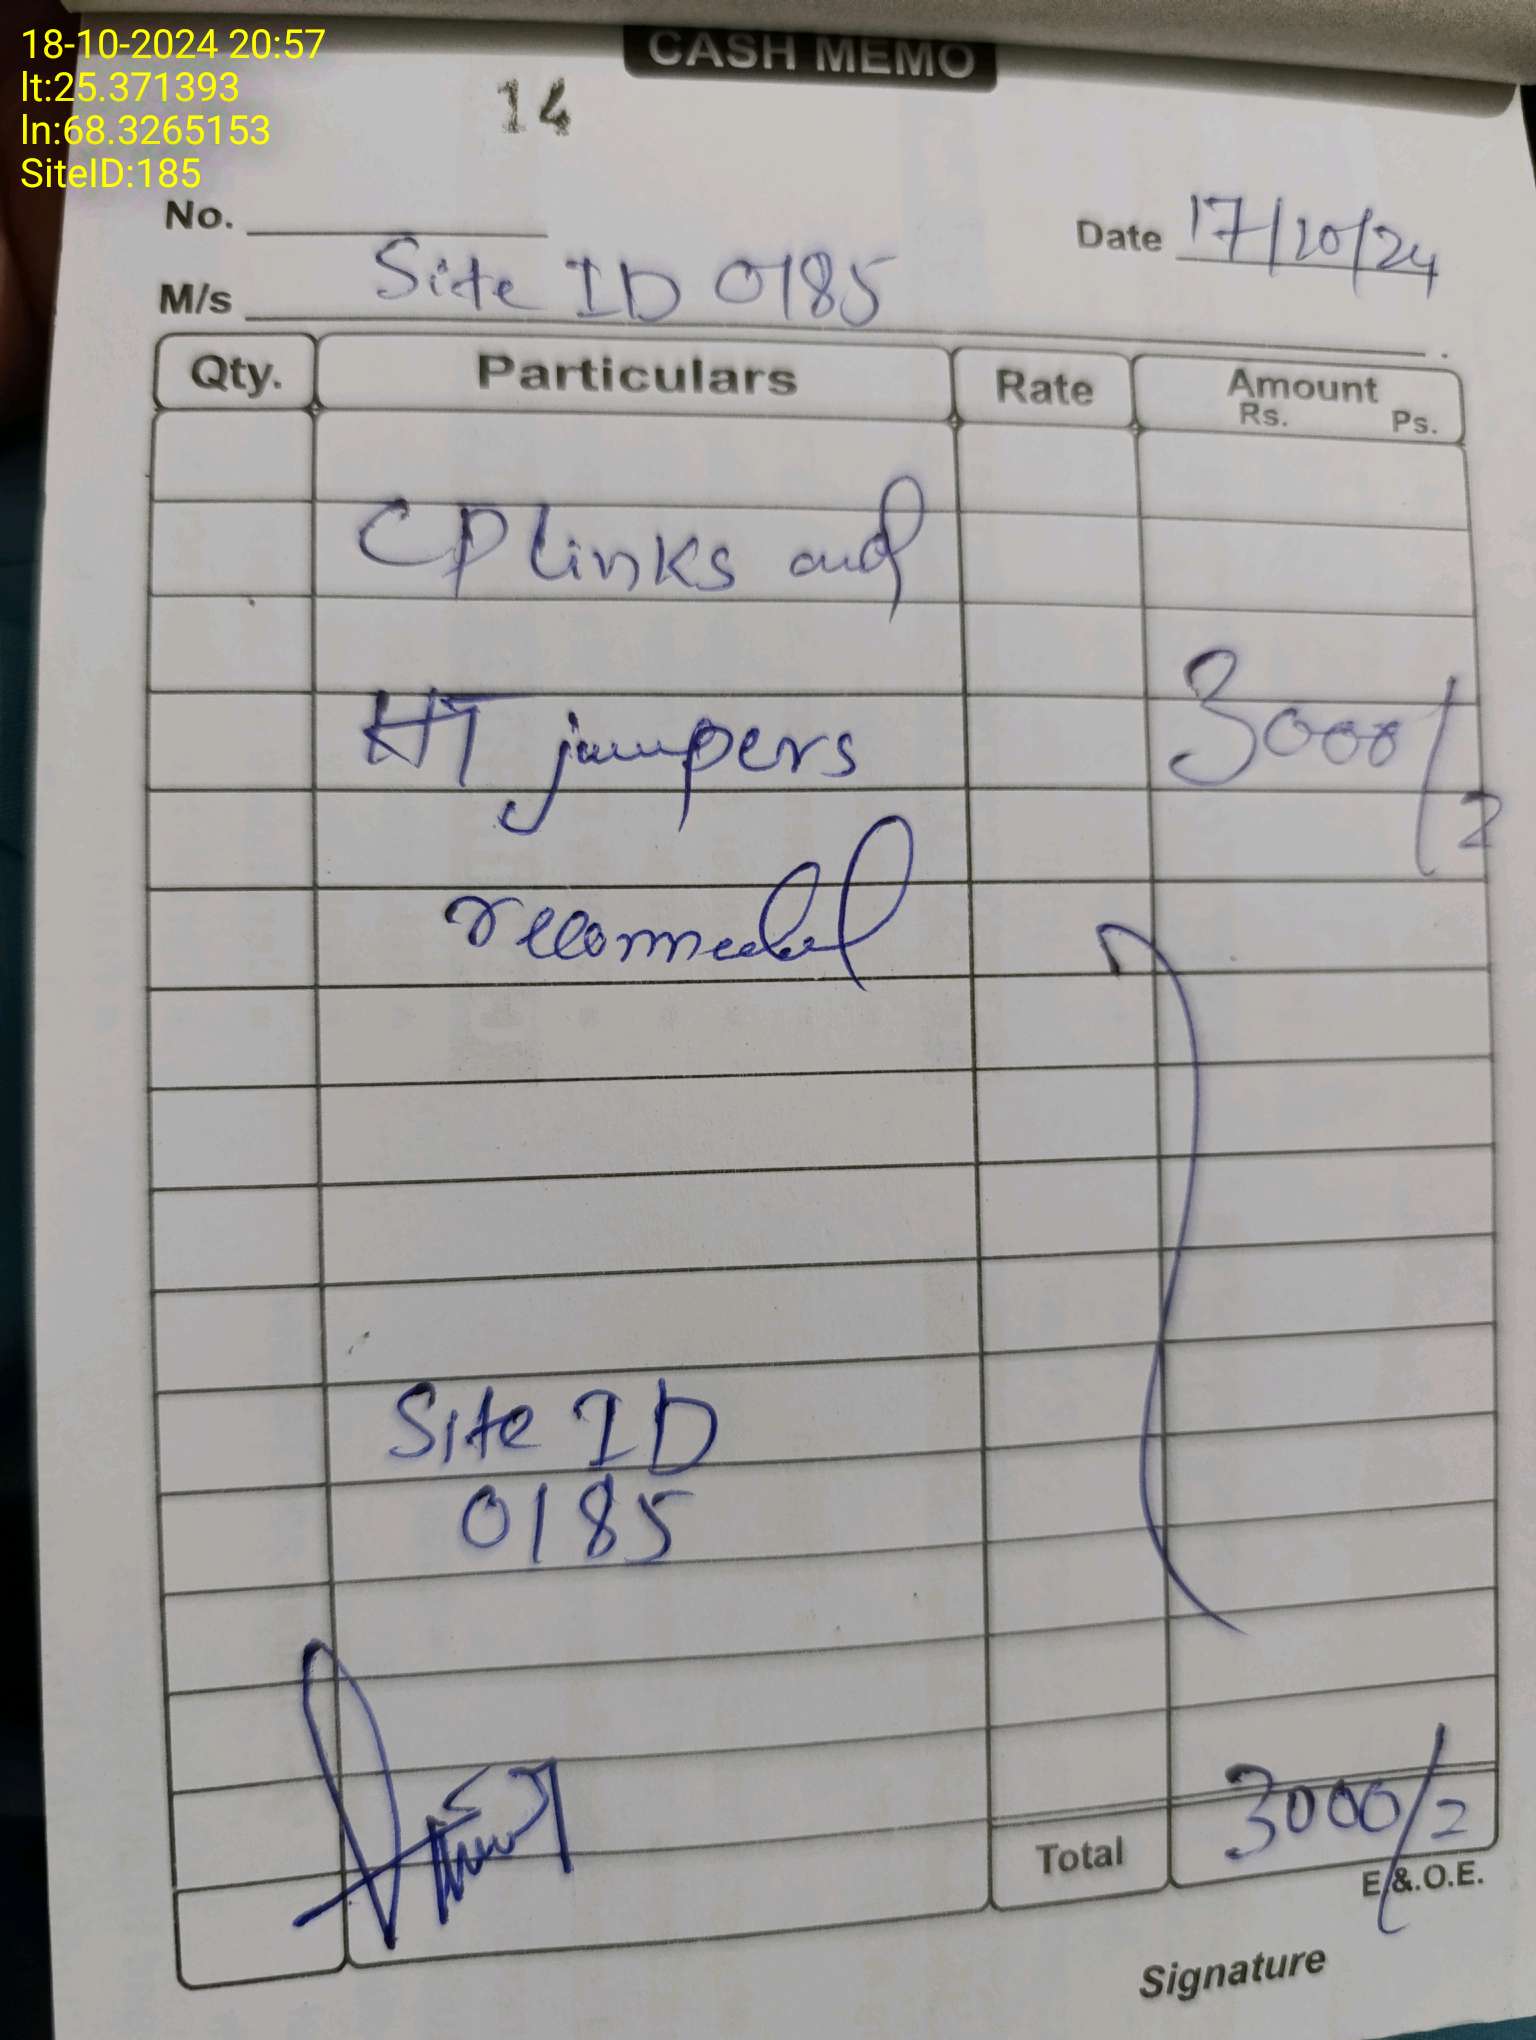 18-10-2024 20:57
lt:25.371393
ln:68.3265153
SiteID:185
CASH MEMO
14
No.
Date 17/10/24
M/s Site ID 0185
Qty. Particulars Rate Amount
Rs. Ps.
CP links and
HT jumpers 3000/2
reconnected
Site ID
0185
Total 3000/2
E.&.O.E.
Signature